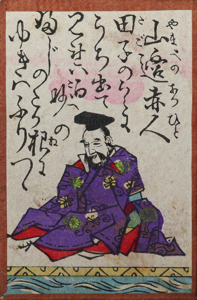 やまへのあかひと
山邊赤人
田子のうらに
うち出て
みれは白妙の
ふしのたか根に
ゆきはふりつゝ